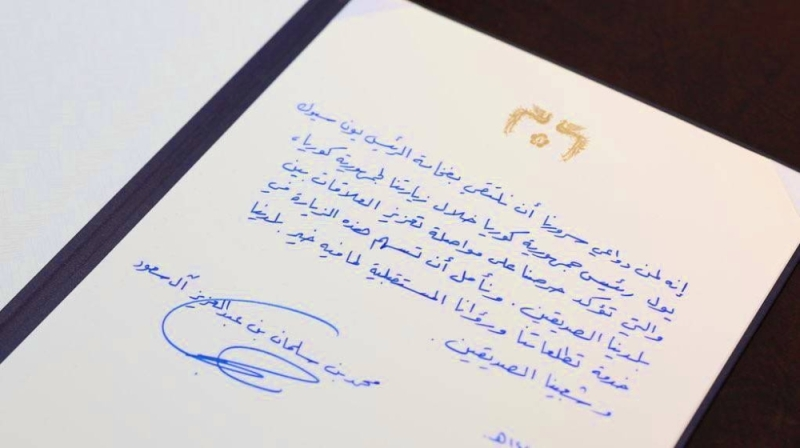 إنه لمن دواعي سرورنا أن نلتقي بفخامة الرئيس يون سيوك
يول رئيس جمهورية كوريا خلال زيارتنا لجمهورية كوريا،
والتي تؤكد حرصنا على مواصلة تعزيز العلاقات بين
بلدينا الصديقين. ونأمل أن تسهم هذه الزيارة في
خدمة تطلعاتنا ورؤانا المستقبلية لما فيه خير بلدينا
وشعبينا الصديقين.
محمد بن سلمان بن عبدالعزيز آل سعود